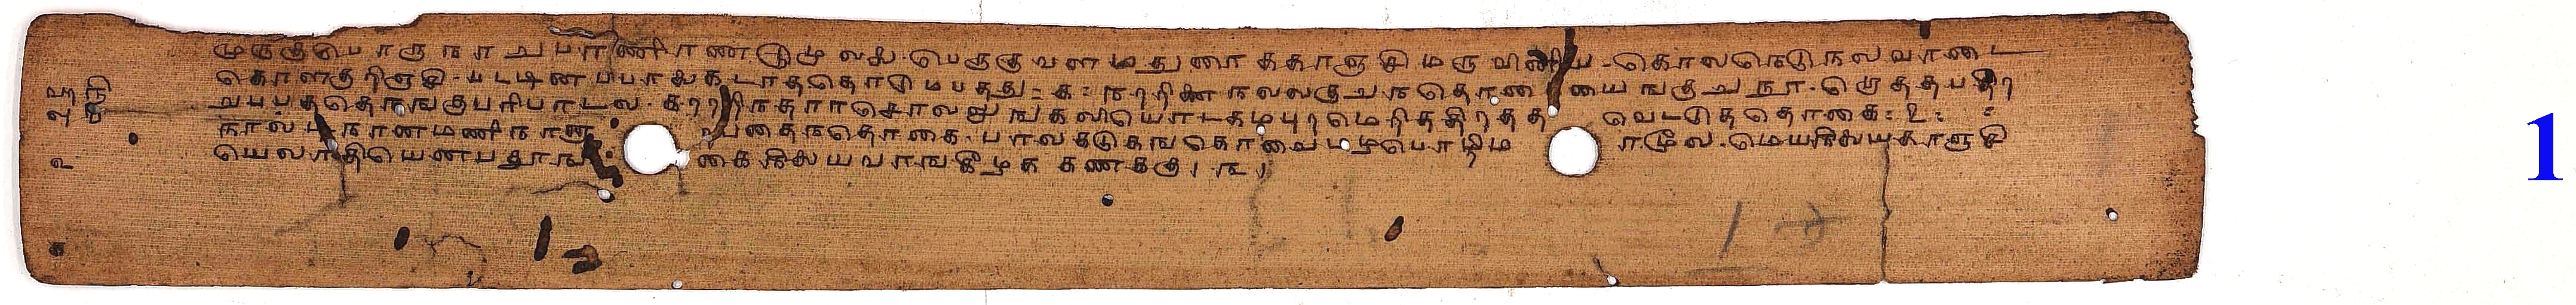 முருகுபொருநாறுபாணிரணடுமுலலை-பெருகுவளமதுரைககாஞசிமருவினிய-கொலநெடுநலவாடை
கொளகுறிஞசி-படடினபபாலைகடாததொடுமபதது: ௧: நறறிணைநலலகுறுநதொகையைஙகுறுநூ-றொததபதி
றறுபபததொஙகுபரிபாடல-கறறறிநதாரசொலலுஙகலியொடகமபுறமெனறிததிறதத வெடடுததொகை: ௨:
நாலடிநானமணிநானா றபதைநதொகை-பாலகடுகஙகொவைபழமொழிம ாமூல-மெயநநிலையகாஞசி
யெலாதியெனபதூஉங கைநநிலையவாஙகீழக கணககு। ௩।